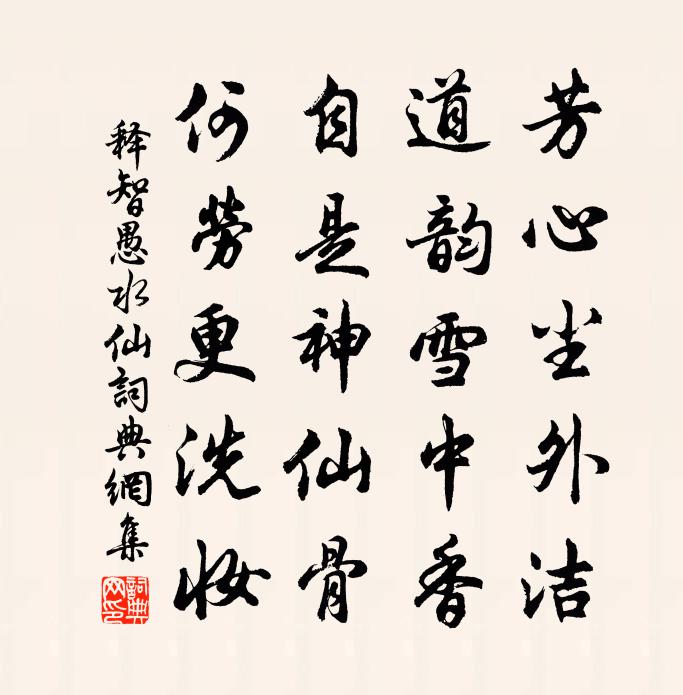 芳心尘外洁
道韵雪中香
自是神仙骨
何劳更洗妆
释智愚水仙詞典網集
詞典网印